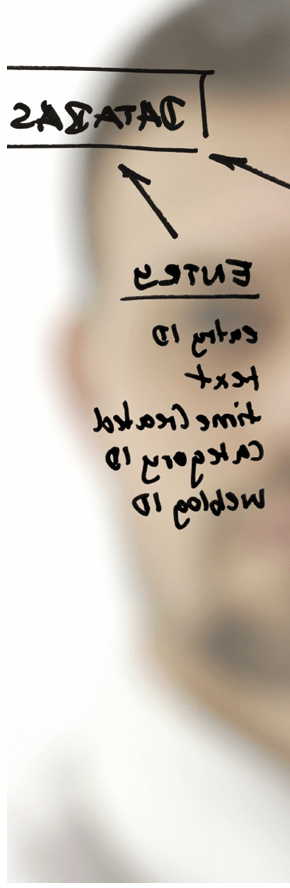 DATABAS
ENTRY
entry ID
text
timeCreated
category ID
weblog ID